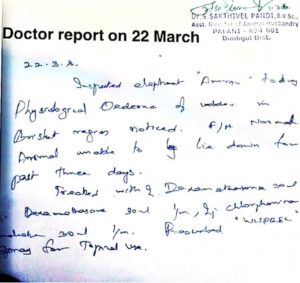 Dr. S. SAKTHIVEL PANDI, B.V.Sc.,
Asst. Director of Animal Husbandry
PALANI - 624 601
Dindigul Dist.
Doctor report on 22 March
22.3.
Inspected elephant today
Physiological Oedema of in
region noticed. F/H Normal.
Animal unable to lie down for
past three days.
Treated with Inj Dexamethasone 30ml
30ml I/m, Inj Chlorpheniramine
30ml I/m. Prescribed
for Topical use.